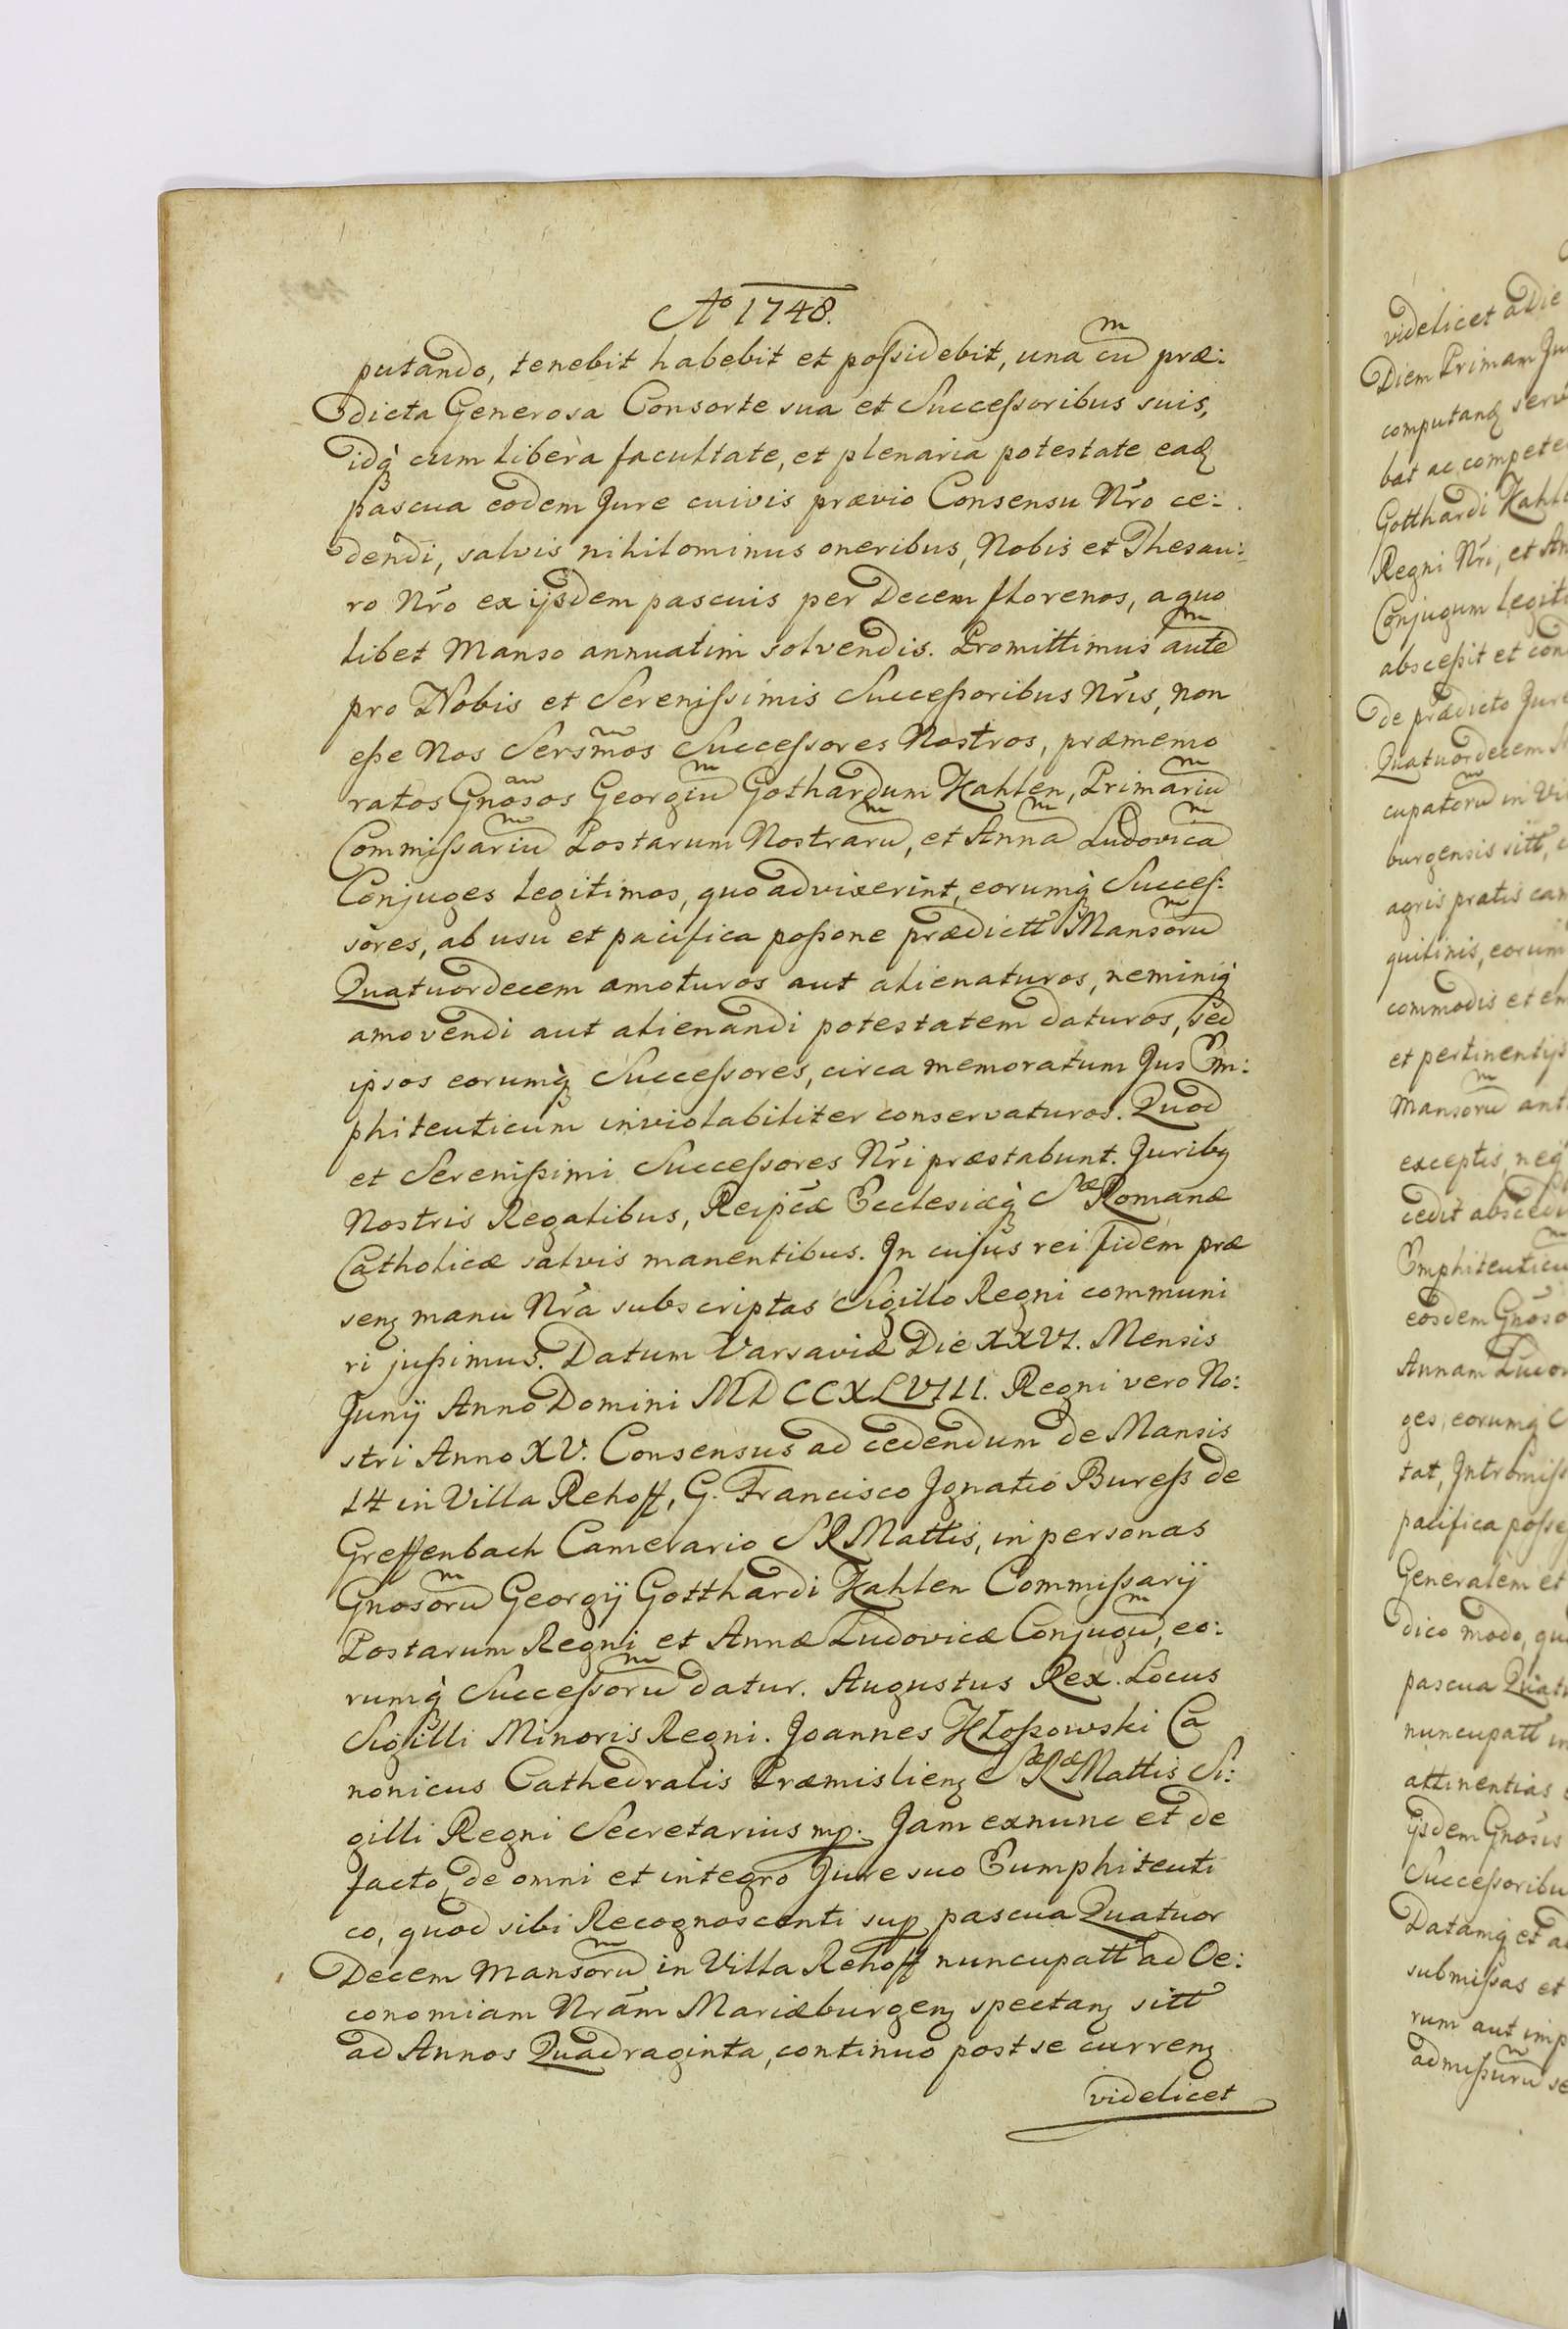 Ao 1748.
putando, tenebit habebit et possidebit, una cũ præ:
dicta Generosa Consorte sua et Successoribus suis,
idq̀ cum liberà facultate, et plenaria potestate eadꝫ
pascua eodem Jure cuivis prævio Consensu Nr̃o ce:
dendi, salvis nihilominus oneribus, Nobis et Thesau:
ro Nr̃o ex ijsdem pascuis per Decem florenos, a quo
libet Manso annuatim solvendis. Promittimus autẽ
pro Nobis et Serenissimis Successoribus Nr̃is, non
esse Nos Sers̃mos Successores Nostros, præmemo
ratos Gnõsos Georgiũ Gothardum Kahlen, Primariũ
Commissariũ Postarum Nostrarũ, et Annã Ludovicã
Conjuges legitimos, quo advixerint, eorumq̀ Succes:
sores, ab usu et pacifica possone prædictt Mansorũ
Quatuordecem amoturos aut alienaturos, neminiq̀
amovendi aut alienandi potestatem daturos, sed
ipsos eorumq̀ Successores, circa memoratum Jus Em:
phiteuticum inviolabiliter conservaturos. Quod
et Serenissimi Successores Nr̃i præstabunt. Juribꝫ
Nostris Regalibus, Reipc̃æ Ecclesiæq̀ Sæ Romanæ
Catholicæ salvis manentibus. In cujus rei fidem præ
senꝫ manu Nr̃a subscriptas Sigillo Regni communi
ri jussimus. Datum Varsaviæ Die XXVI. Mensis
Junij Anno Domini MDCCXLVIII. Regni vero No:
stri Anno XV. Consensus ad cedendum de Mansis
14 in Villa Rehoff, G. Francisco Ignatio Buress de
Greffenbach Camerario S R Mattis, in personas
Gnosorũ Georgij Gotthardi Kahlen Commissarij
Postarum Regni et Annæ Ludovicæ Conjugũ, eo:
rumq̀ Successorũ datur. Augustus Rex. Locus
Sigilli Minoris Regni. Joannes Kłossowski Ca
nonicus Cathedralis Præmislienꝫ Sæ Ræ Mattis Si:
gilli Regni Secretarius mp. Jam exnunc et de
facto, de omni et integro Jure suo Eumphiteuti
co, quod sibi Recognoscenti sup pascua Quatuor
Decem Mansorũ in Villa Rehoff nuncupatt ad Oe:
conomiam Nrãm Mariæburgenꝫ spectanꝫ sitt
ad Annos Quadraginta, continuo post se currenꝫ
videlicet
videlicet a Die
Diem Primam Ju
computanꝫ
bat ac compete
Gotthardi Kahle
Regni Nr̃i, et An
Conjugum legiti
abscessit et con
de prædicto Jure
Quatuordecem
cupatorũ in Vi
burgensis sitt,
agris pratis cam
quilinis, eorum
commodis et em
et pertinentijs
Mansorũ ant
exceptis, neq̀
cedit abscedi
Emphiteuticũ
eosdem Gnõso
Annam Ludov
ges, eorumq̀
tat, Intromiss
pacifica posse
Generalem et
dico modo, qu
pascua Quatu
nuncupatt in
attinentias
ijsdem Gnõsis
Successoribu
Datamq̀ et a
submissas et
rum aut imp
admissurũ se